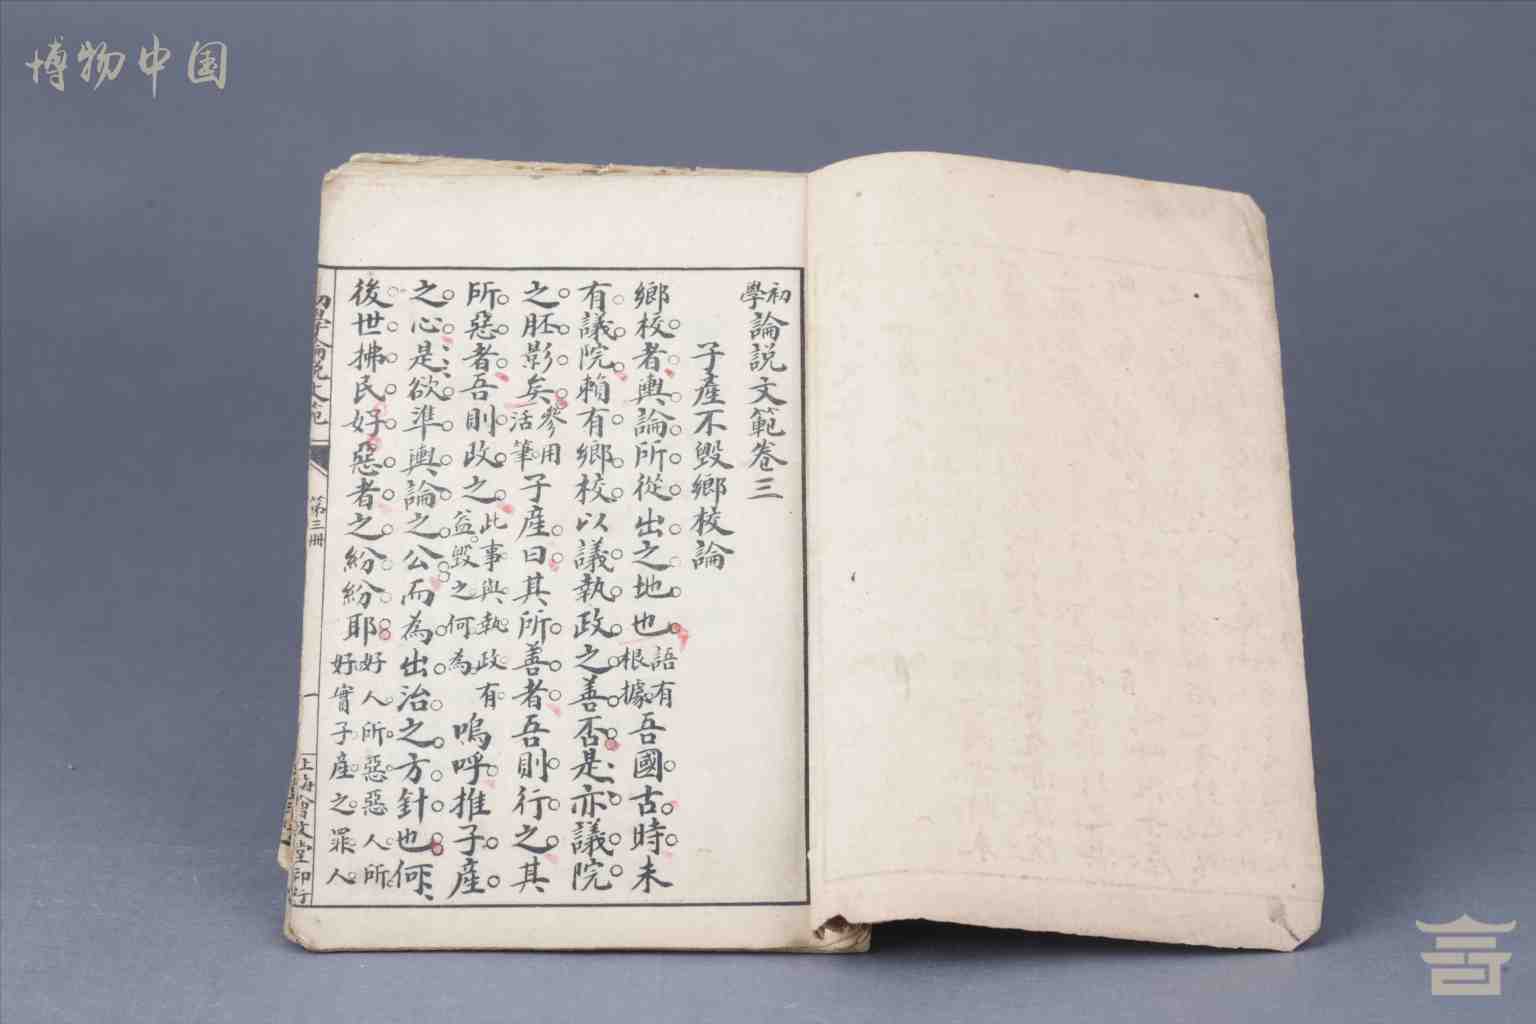 博物中国
初學論説文範卷三
子產不毀鄉校論
鄉校者輿論所從出之地也語有根據吾國古時未
有議院賴有鄉校以議執政之善否是亦議院
之胚影矣參用活筆子產曰其所善者吾則行之其
所惡者吾則改之此事與執政有益毀之何為嗚呼推子產
之心是欲準輿論之公而為出治之方針也何
後世拂民好惡者之紛紛耶好人所惡惡人所好實子產之罪人
初學論説文範
第三冊
一
上海會文堂印行